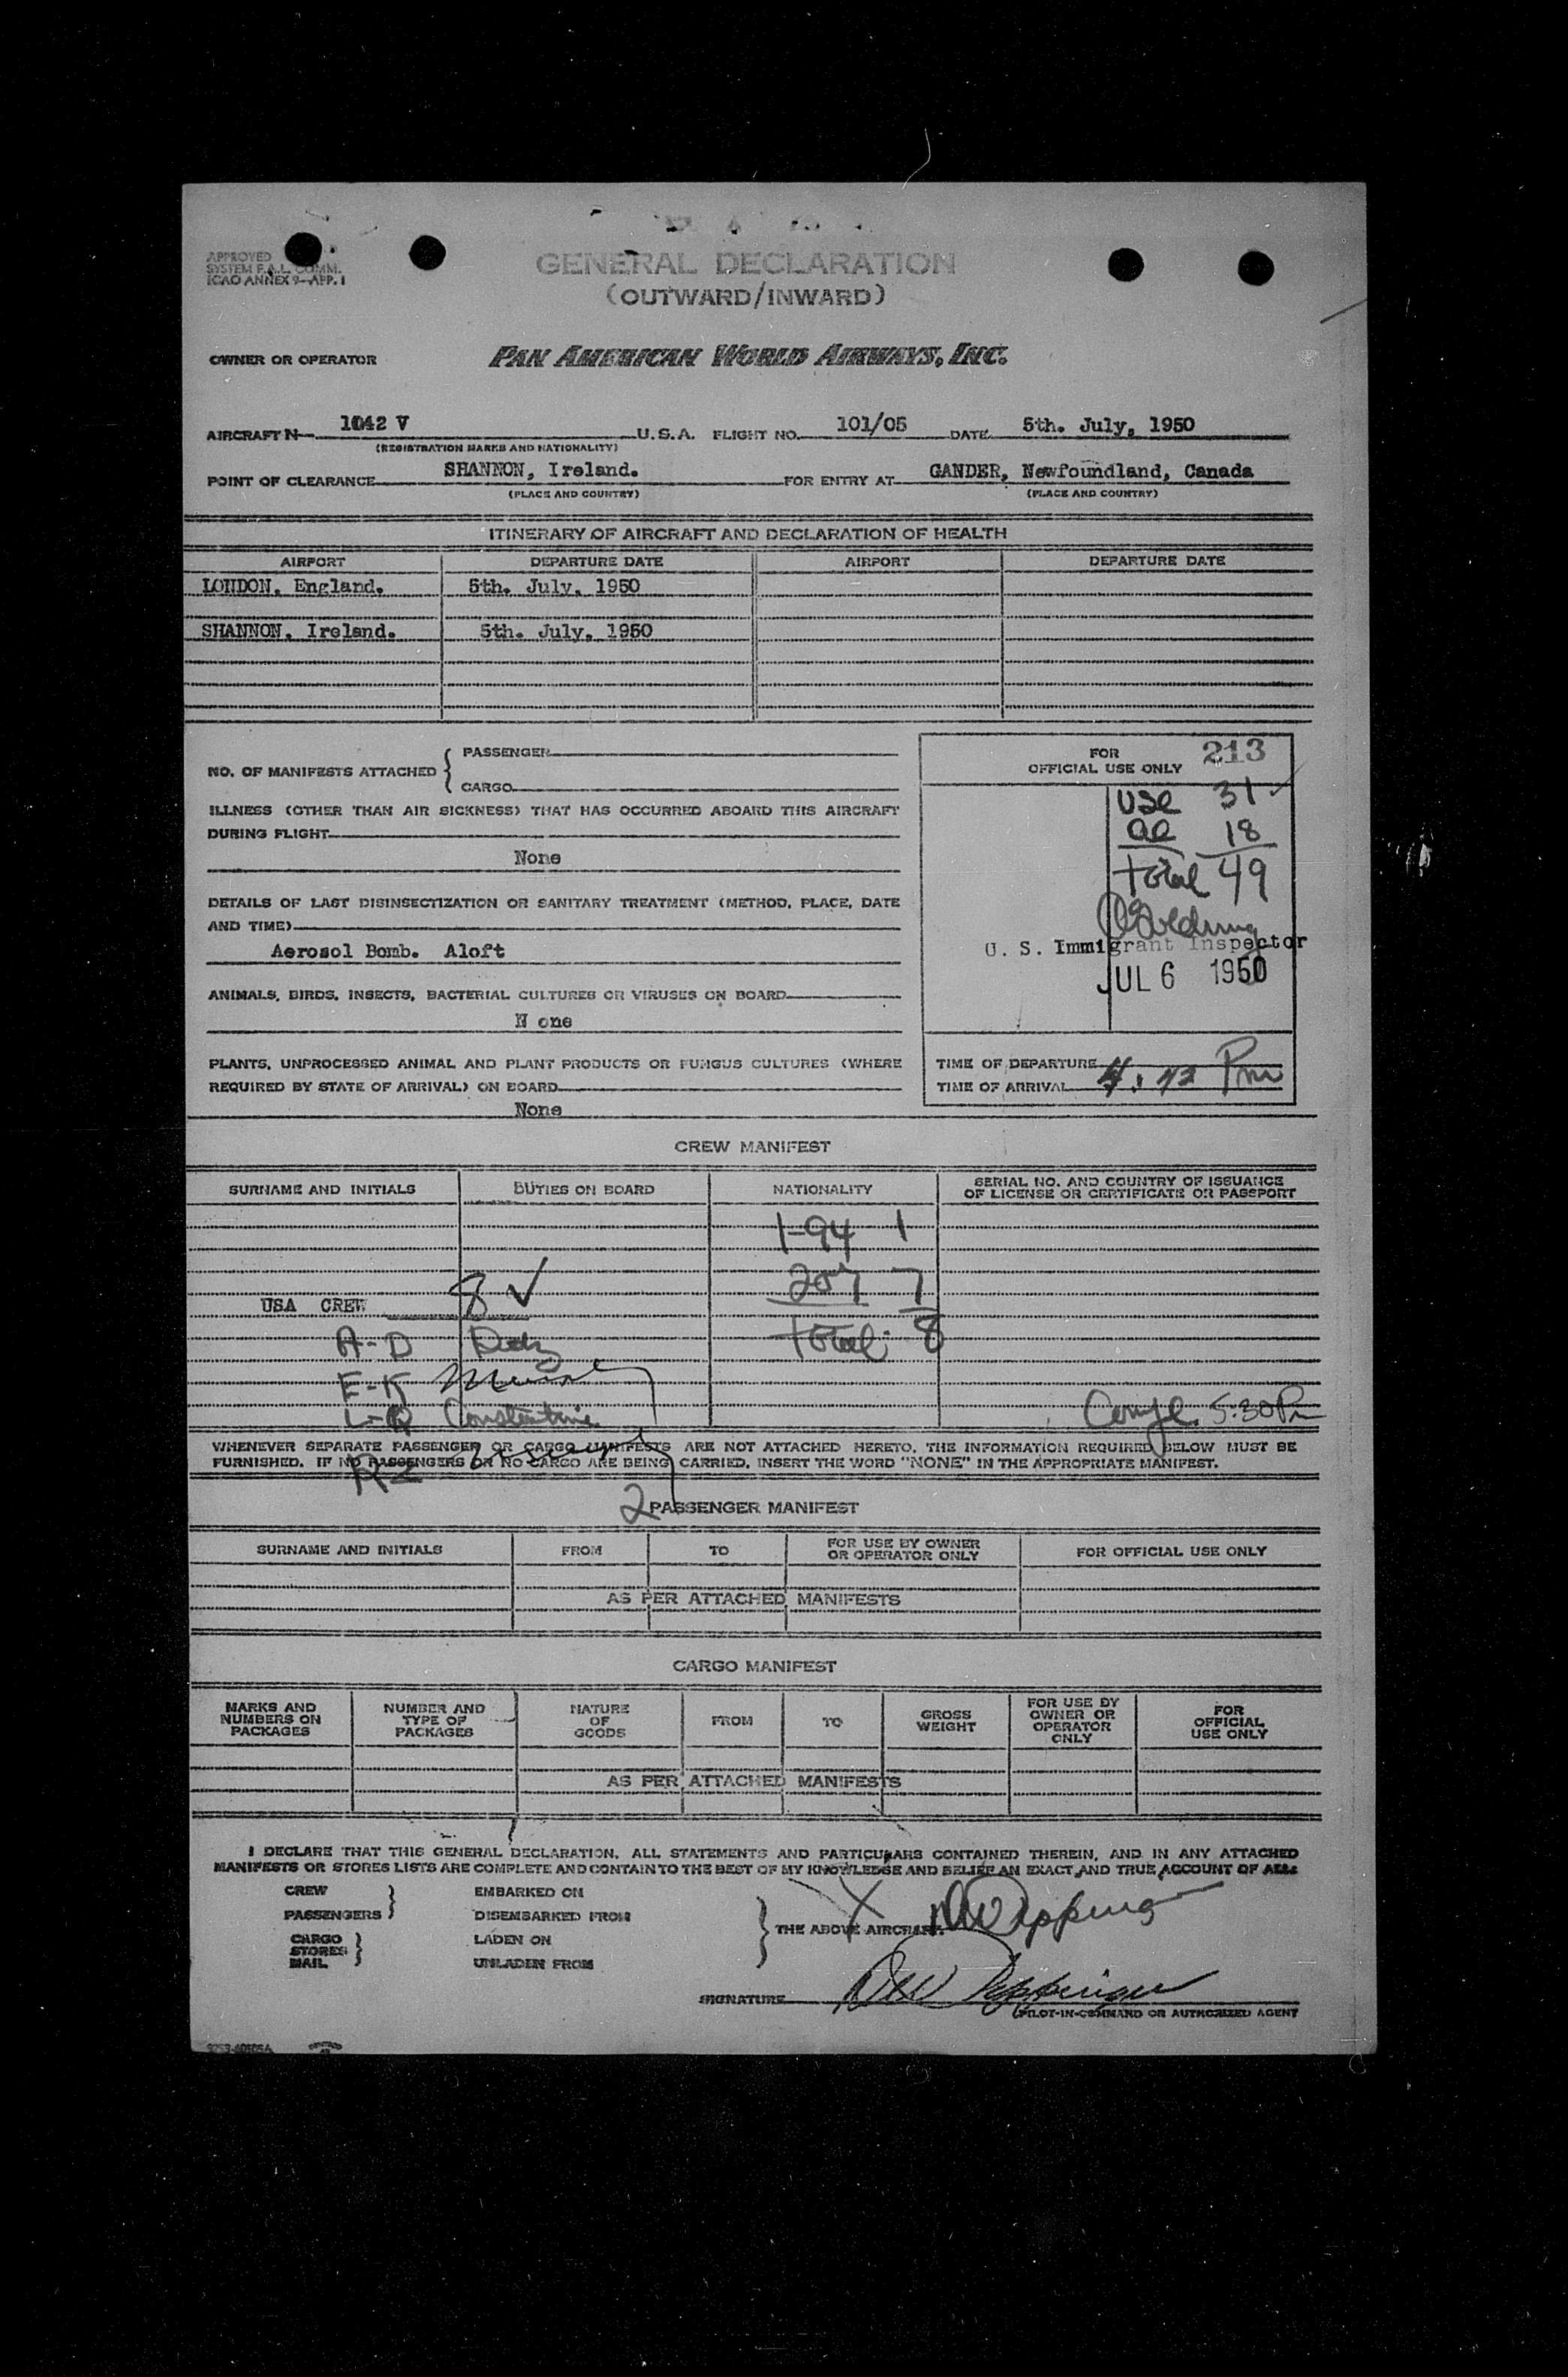 APPROVED
SYSTEM F.A.L. COMM.
ICAO ANNEX 9—APP. 1
GENERAL DECLARATION
(OUTWARD/INWARD)
OWNER OR OPERATOR PAN AMERICAN WORLD AIRWAYS, INC.
AIRCRAFT N— 1042 V U.S.A. FLIGHT NO. 101/05 DATE 5th. July, 1950
(REGISTRATION MARKS AND NATIONALITY)
POINT OF CLEARANCE SHANNON, Ireland. FOR ENTRY AT GANDER, Newfoundland, Canada
(PLACE AND COUNTRY) (PLACE AND COUNTRY)
ITINERARY OF AIRCRAFT AND DECLARATION OF HEALTH
AIRPORT DEPARTURE DATE AIRPORT DEPARTURE DATE
LONDON, England. 5th. July, 1950
SHANNON, Ireland. 5th. July, 1950
NO. OF MANIFESTS ATTACHED { PASSENGER
CARGO
ILLNESS (OTHER THAN AIR SICKNESS) THAT HAS OCCURRED ABOARD THIS AIRCRAFT
DURING FLIGHT
None
DETAILS OF LAST DISINSECTIZATION OR SANITARY TREATMENT (METHOD, PLACE, DATE
AND TIME)
Aerosol Bomb. Aloft
ANIMALS, BIRDS, INSECTS, BACTERIAL CULTURES OR VIRUSES ON BOARD
N one
PLANTS, UNPROCESSED ANIMAL AND PLANT PRODUCTS OR FUNGUS CULTURES (WHERE
REQUIRED BY STATE OF ARRIVAL) ON BOARD
None
FOR 213
OFFICIAL USE ONLY
USC 31
al 18
Total 49
U. S. Immigrant Inspector
JUL 6 1950
TIME OF DEPARTURE
TIME OF ARRIVAL 4:42 Pm
CREW MANIFEST
SURNAME AND INITIALS DUTIES ON BOARD NATIONALITY SERIAL NO. AND COUNTRY OF ISSUANCE
OF LICENSE OR CERTIFICATE OR PASSPORT
I-94 1
257 7
USA CREW 8 ✓
Total 8
A-D
E-K
L-Q Constantine
5:30 Pm
WHENEVER SEPARATE PASSENGER OR CARGO MANIFESTS ARE NOT ATTACHED HERETO, THE INFORMATION REQUIRED BELOW MUST BE
FURNISHED. IF NO PASSENGERS OR NO CARGO ARE BEING CARRIED, INSERT THE WORD "NONE" IN THE APPROPRIATE MANIFEST.
R-Z
2 PASSENGER MANIFEST
SURNAME AND INITIALS FROM TO FOR USE BY OWNER
OR OPERATOR ONLY FOR OFFICIAL USE ONLY
AS PER ATTACHED MANIFESTS
CARGO MANIFEST
MARKS AND
NUMBERS ON
PACKAGES
NUMBER AND
TYPE OF
PACKAGES
NATURE
OF
GOODS
FROM
TO
GROSS
WEIGHT
FOR USE BY
OWNER OR
OPERATOR
ONLY
FOR
OFFICIAL
USE ONLY
AS PER ATTACHED MANIFESTS
I DECLARE THAT THIS GENERAL DECLARATION, ALL STATEMENTS AND PARTICULARS CONTAINED THEREIN, AND IN ANY ATTACHED
MANIFESTS OR STORES LISTS ARE COMPLETE AND CONTAIN TO THE BEST OF MY KNOWLEDGE AND BELIEF AN EXACT AND TRUE ACCOUNT OF ALL:
CREW EMBARKED ON
PASSENGERS DISEMBARKED FROM
THE ABOVE AIRCRAFT.
CARGO LADEN ON
STORES
MAIL UNLADEN FROM
SIGNATURE
(PILOT-IN-COMMAND OR AUTHORIZED AGENT